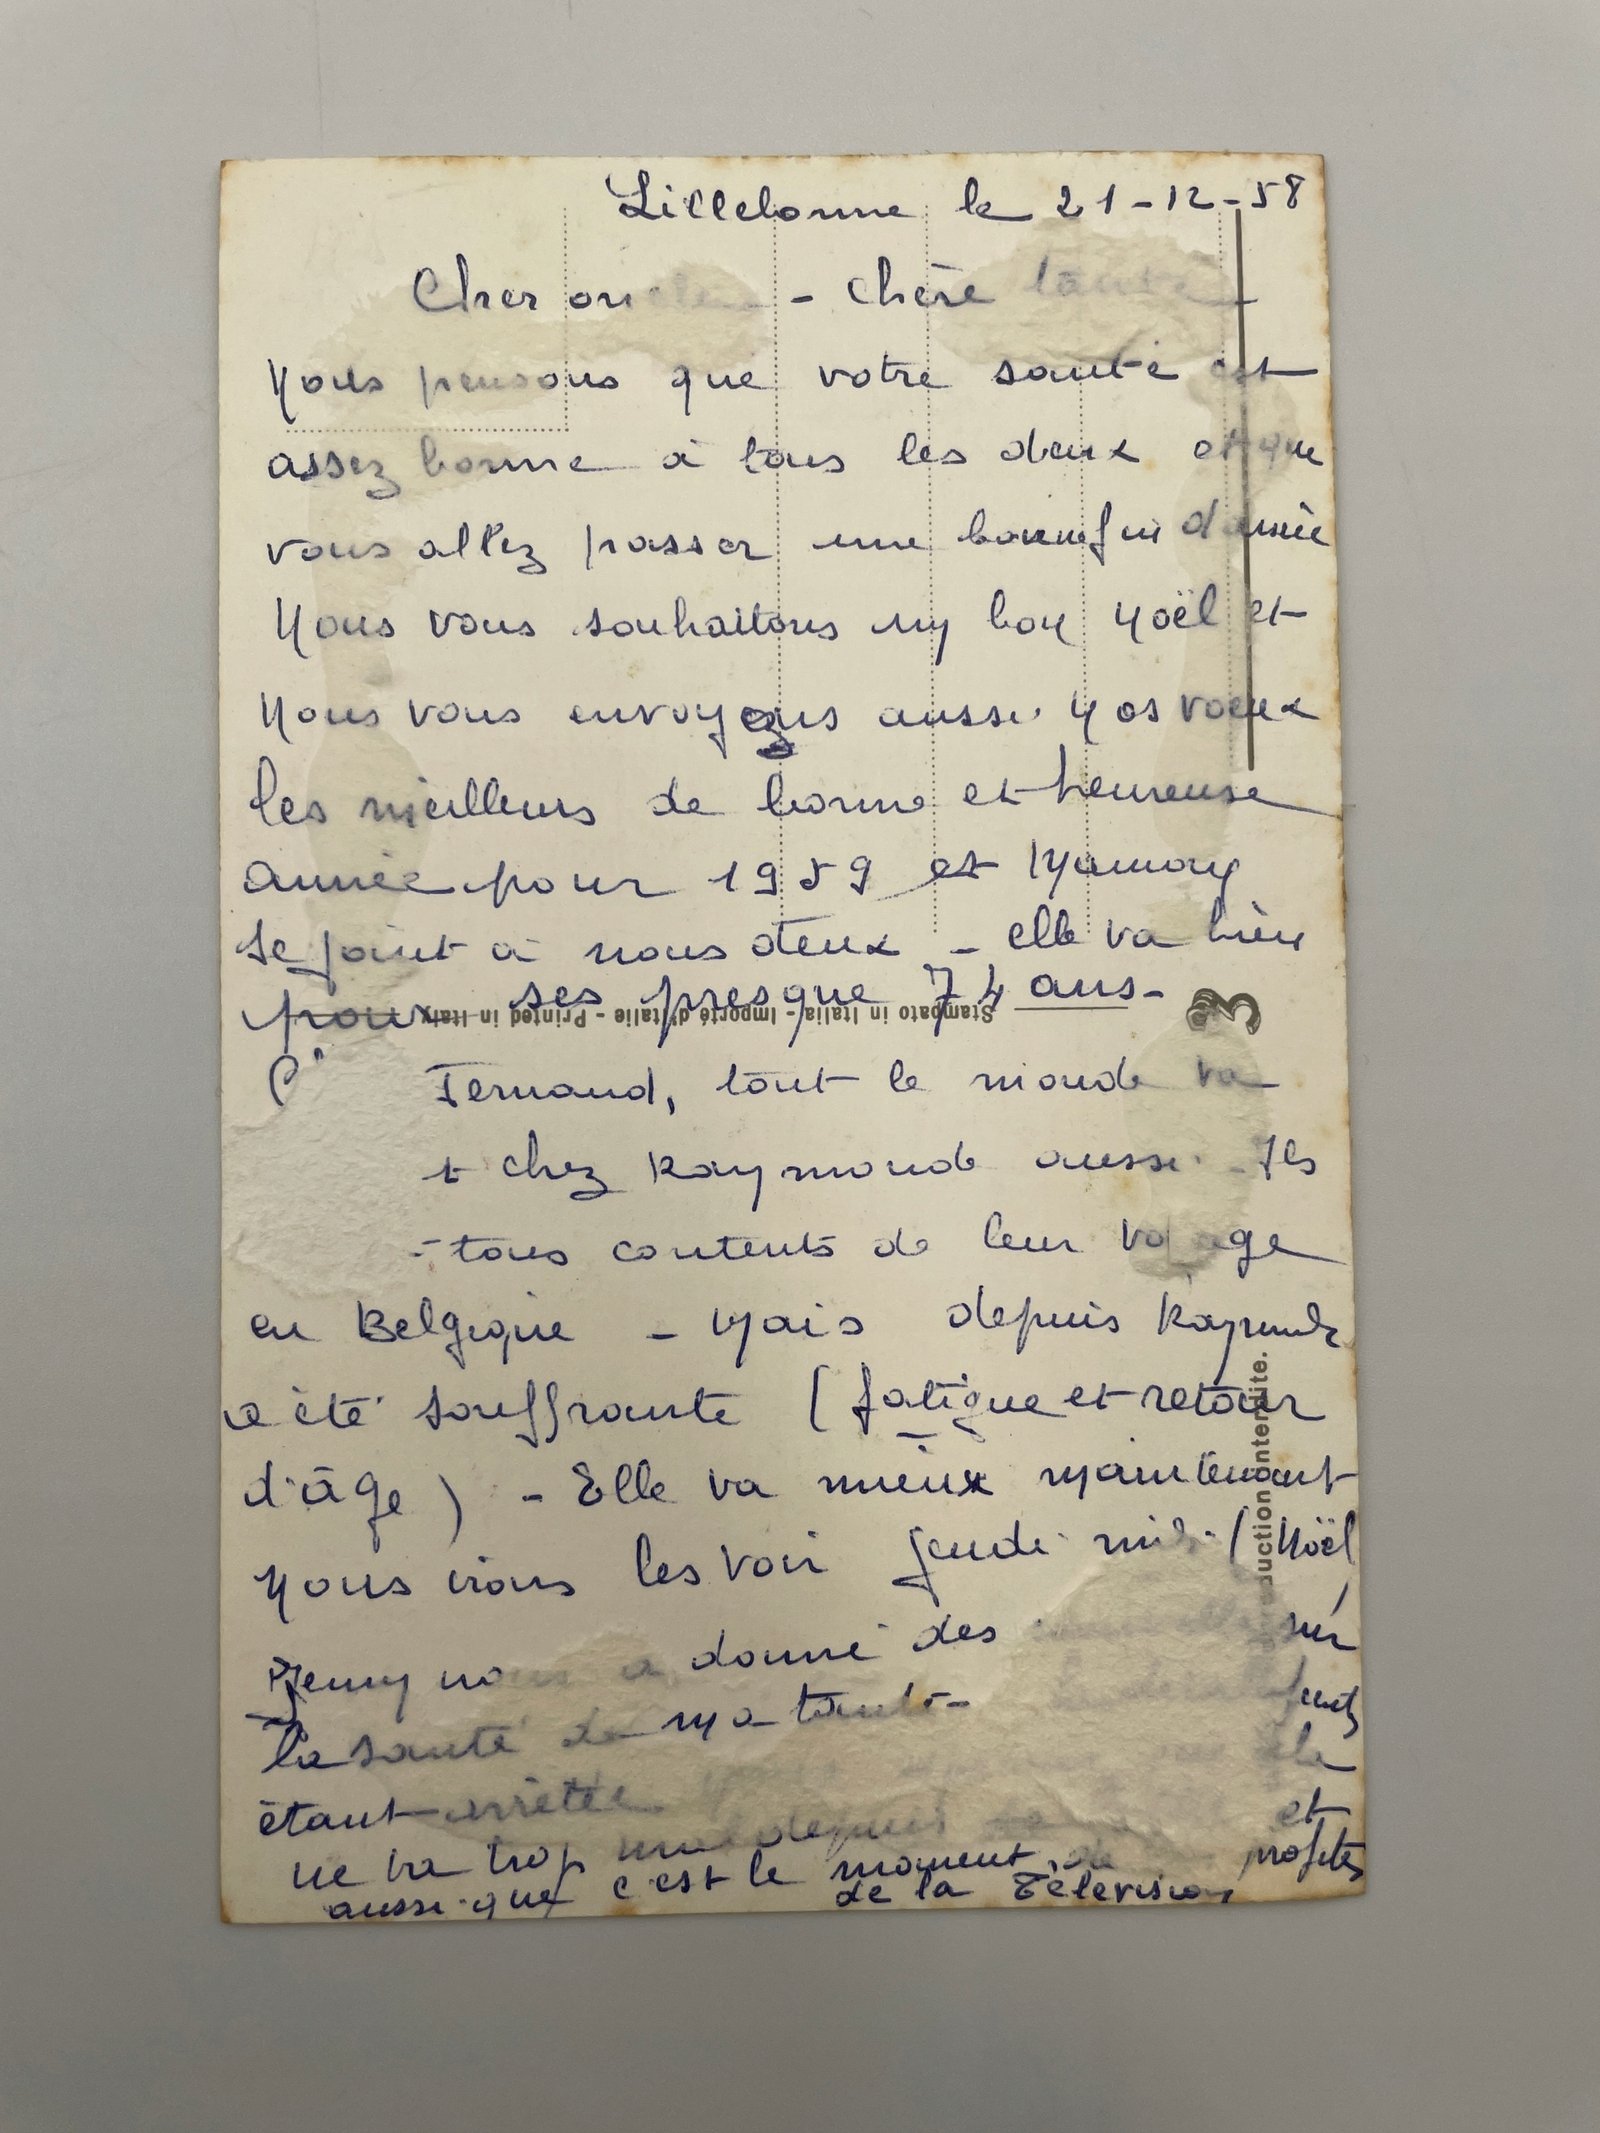 Lillebonne le 21-12-58
Cher oncle - Chère tante
Nous pensons que votre santé est
assez bonne à tous les deux et que
vous allez passer une bonne fin d'année
Nous vous souhaitons un bon Noël et
Nous vous envoyons aussi nos voeux
les meilleurs de bonne et heureuse
année pour 1959 et Maman
se joint à nous deux - elle va bien
pour ses presque 74 ans -
Stampato in Italia - Importé d'Italie - Printed in Italy
C Fernand, tout le monde va
t chez Raymonde aussi - Ils
tous contents de leur voyage
en Belgique - Mais depuis Raymonde
a été souffrante (fatigue et retour
d'âge) - Elle va mieux maintenant
Nous irons les voir jeudi midi (Noël
Jenny nous a donné des sur
la santé de ma tante -
étant arrêtée la
ne va trop mal depuis et
aussi que c'est le moment de profiter
de la Télévision
uction interdite.